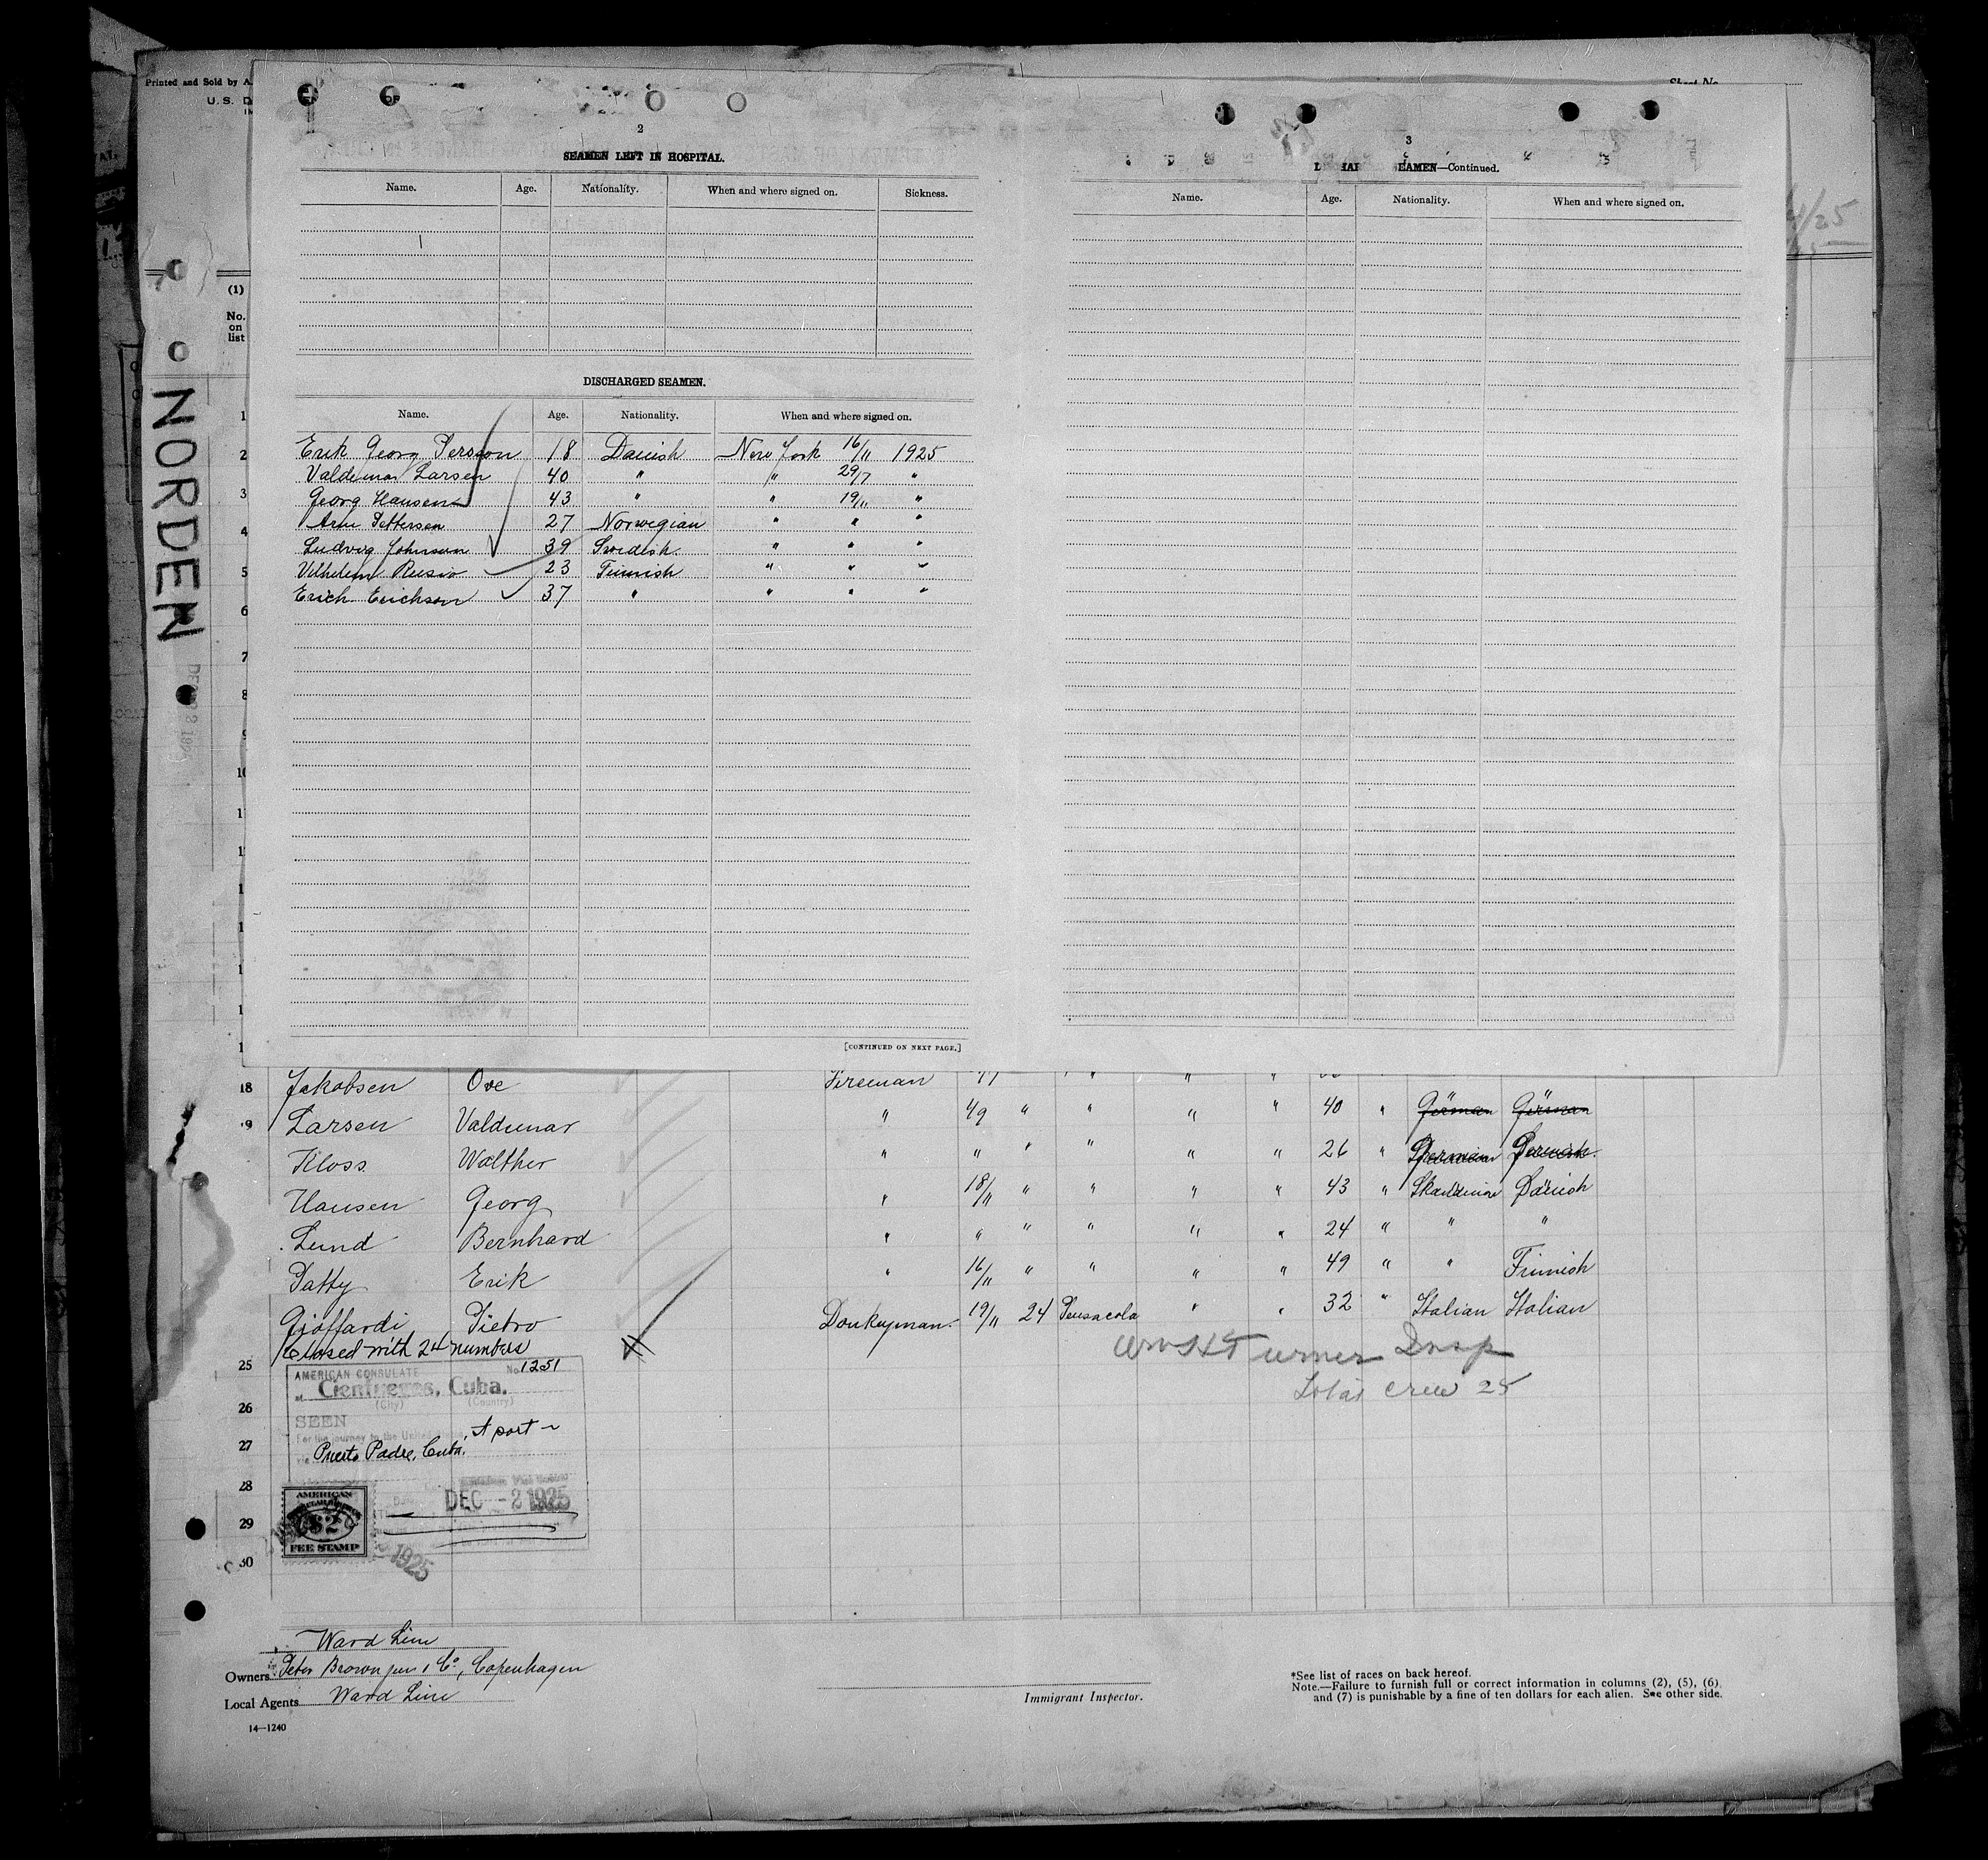 Printed and Sold by A.
U.S. D
Sheet No.
4/25
(1)
No.
on
list
NORDEN
2
SEAMEN LEFT IN HOSPITAL.
Name. Age. Nationality. When and where signed on. Sickness.
DISCHARGED SEAMEN.
Name. Age. Nationality. When and where signed on.
Erik Georg Persson 18 Danish New York 16/11 1925
Valdemar Larsen 40 " " 29/7 "
Georg Hansen 43 " " 19/11 "
Arne Pettersen 27 Norwegian " " "
Ludvig Johnson 39 Swedish " " "
Vilhelm Rusio 23 Finnish " " "
Erich Erichson 37 " " " "
[CONTINUED ON NEXT PAGE.]
3
EAMEN—Continued.
Name. Age. Nationality. When and where signed on.
1
2
3
4
5
6
7
8
18 Jakobsen Ove Fireman " " "
19 Larsen Valdemar " 4/9 " " " " 40 " German German
Kloss Walther " " " " " " 26 "
Hansen Georg " 18/11 " " " " 43 " Skandinav Danish
Lund Bernhard " " " " " " 24 " " "
Patty Erik " 16/11 " " " " 49 " " Finnish
Gjoffardi Pietro Donkeyman 19/11 24 Pensacola " " 32 " Italian Italian
Closed with 24 numbers
25
Total crew 25
AMERICAN CONSULATE No. 1251
at Cienfuegos, Cuba.
(City) (Country)
26
SEEN
For the journey to the United
27
via Puerto Padre, Cuba.
28
DEC -2 1925
AMERICAN
$2
FEE STAMP
29
1925
30
Ward Line
Owners Peter Brown jun & Co, Copenhagen
Local Agents Ward Line
14—1240
Immigrant Inspector.
*See list of races on back hereof.
Note.—Failure to furnish full or correct information in columns (2), (5), (6)
and (7) is punishable by a fine of ten dollars for each alien. See other side.